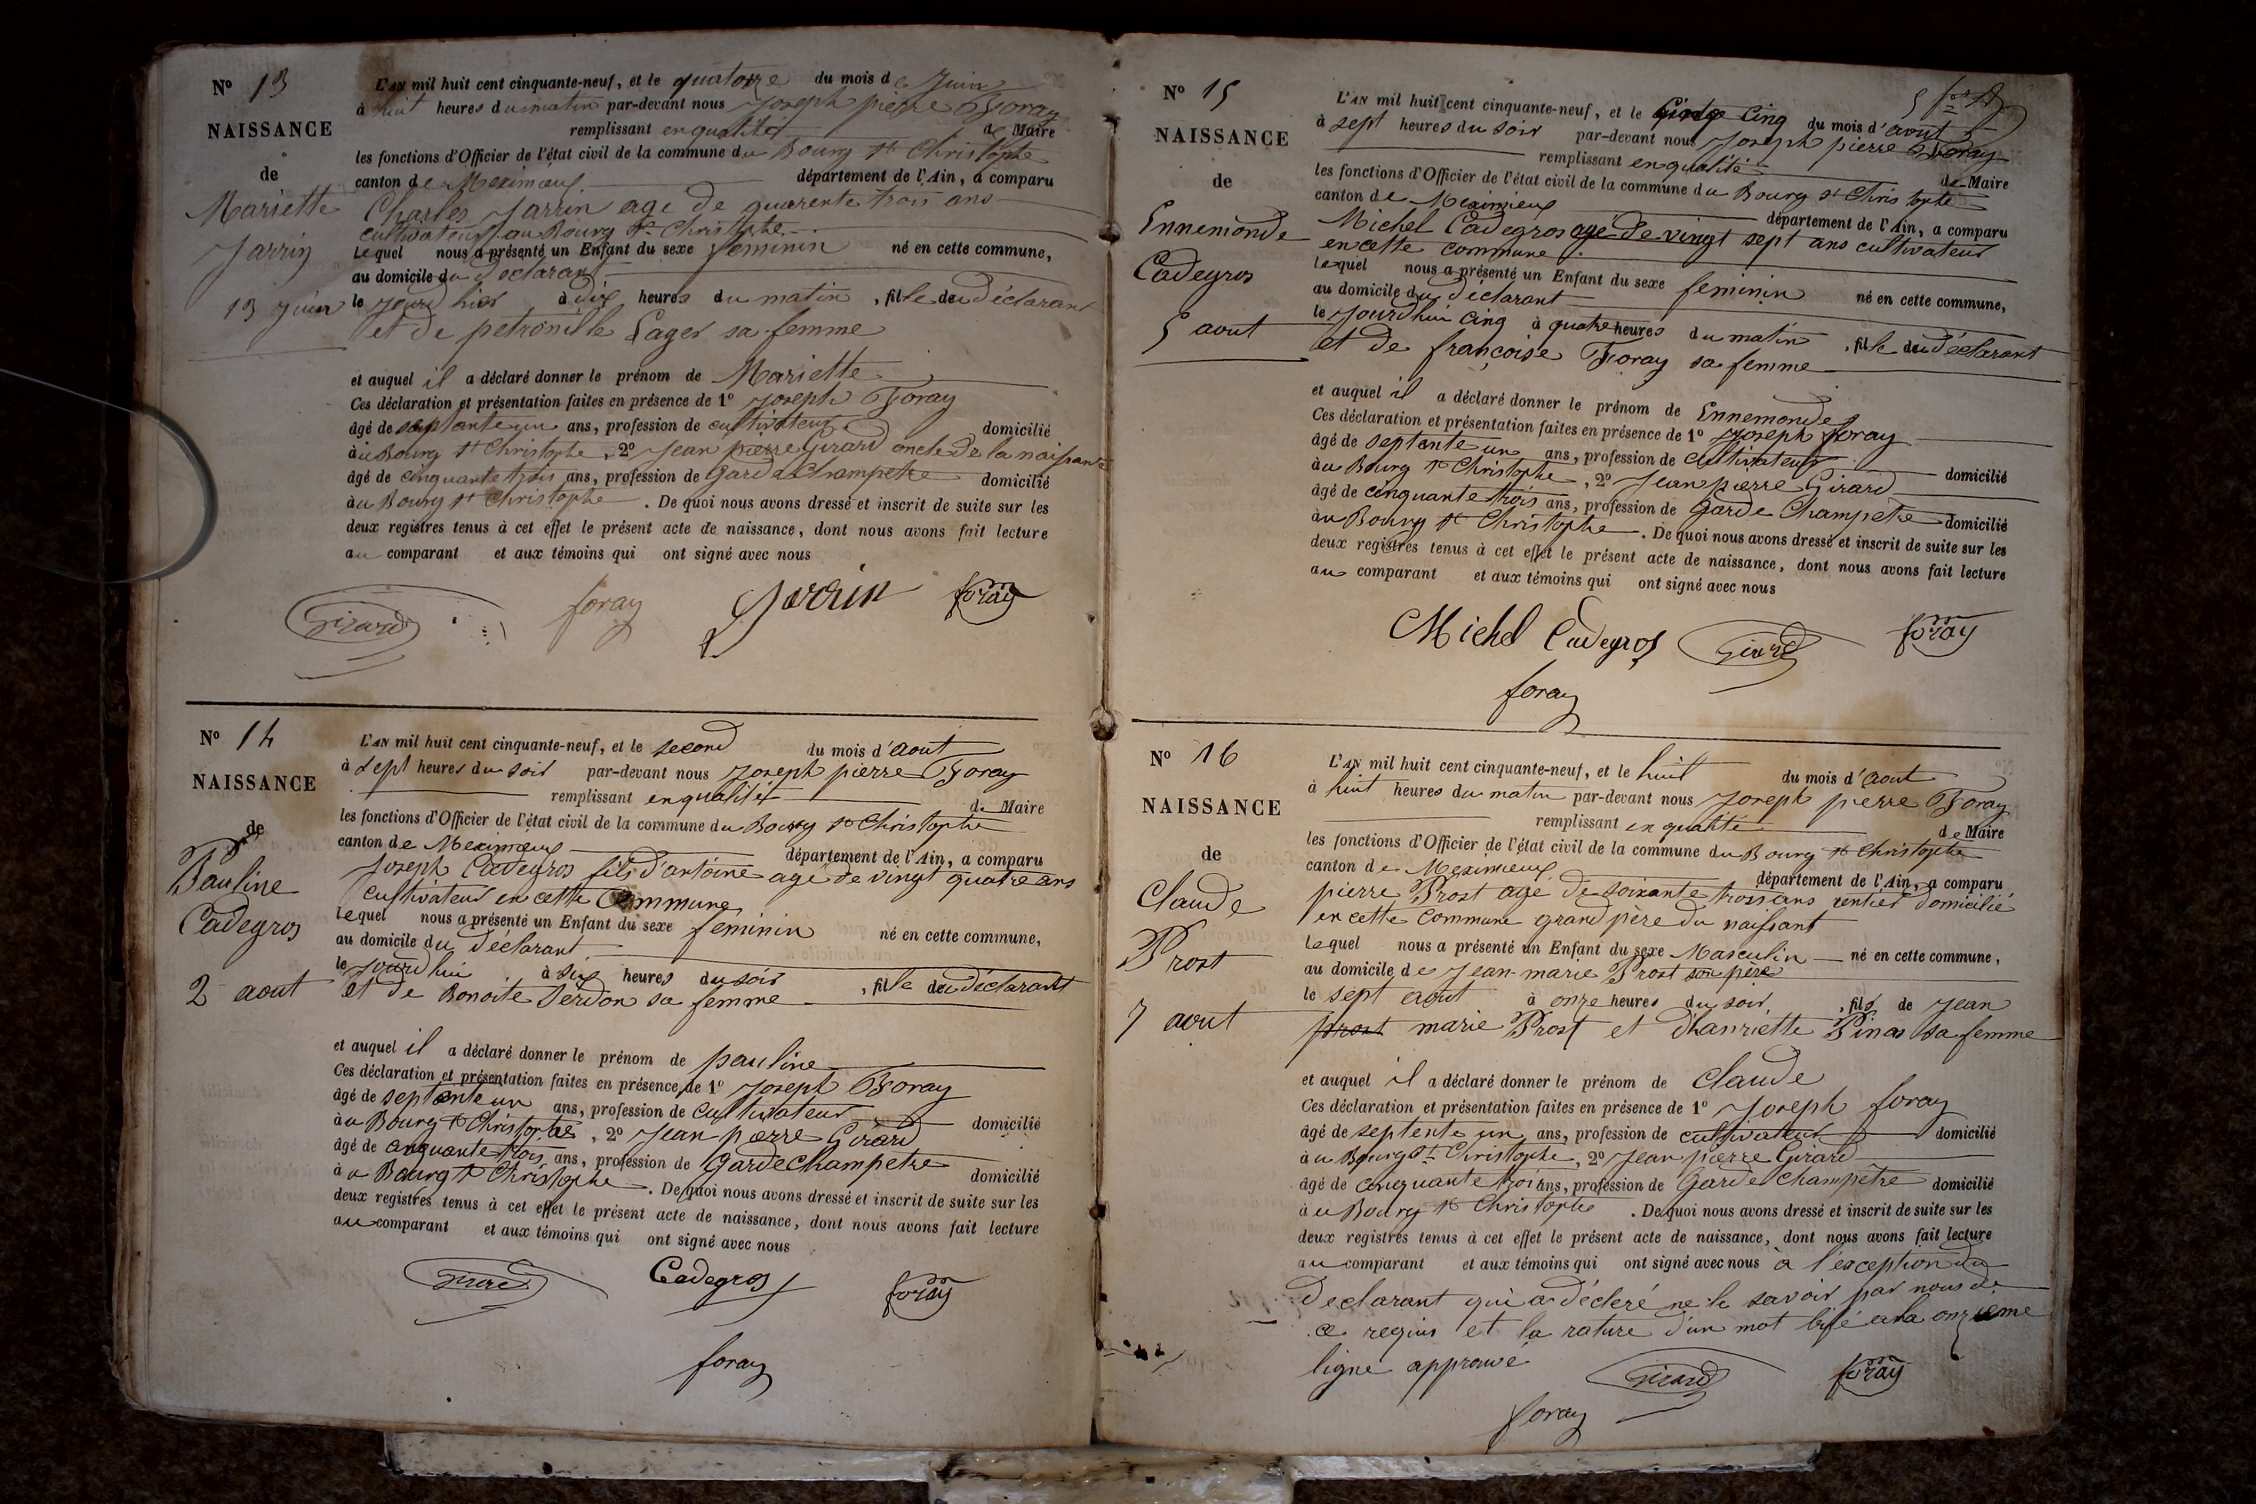 Nº 13
NAISSANCE
de
Mariette
Jarrin
13 juin
L'AN mil huit cent cinquante-neuf, et le quatorze du mois de Juin
à huit heures du matin par-devant nous Joseph pierre Foray
remplissant en qualité de Maire
les fonctions d'Officier de l'état civil de la commune du Bourg St Christophe
canton de Meximieux département de l'Ain, a comparu
Charles Jarrin age de quarente trois ans
cultivateur au Bourg St Christophe
Lequel nous a présenté un Enfant du sexe feminin né en cette commune,
au domicile du déclarant
le jourd hier à dix heures du matin, fille du déclarant
et de petronille Lager sa femme
et auquel il a déclaré donner le prénom de Mariette
Ces déclaration et présentation faites en présence de 1º Joseph Foray
âgé de septante un ans, profession de cultivateur domicilié
à u Bourg St Christophe, 2º Jean pierre Girard oncle de la naissante
âgé de cinquante trois ans, profession de Garde Champetre domicilié
au Bourg St Christophe. De quoi nous avons dressé et inscrit de suite sur les
deux registres tenus à cet effet le présent acte de naissance, dont nous avons fait lecture
au comparant et aux témoins qui ont signé avec nous
Girard foray Jarrin foray
Nº 14
NAISSANCE
de
Pauline
Cadegros
2 aout
L'AN mil huit cent cinquante-neuf, et le second du mois d'aout
à sept heures du soir par-devant nous Joseph pierre Foray
remplissant en qualité de Maire
les fonctions d'Officier de l'état civil de la commune du Bourg St Christophe
canton de Meximieux département de l'Ain, a comparu
Joseph Cadegros fils d'antoine age de vingt quatre ans
cultivateur en cette Commune
Lequel nous a présenté un Enfant du sexe feminin né en cette commune,
au domicile du déclarant
le jourd hui à six heures du soir, fille du déclarant
et de Benoite Serdon sa femme
et auquel il a déclaré donner le prénom de pauline
Ces déclaration et présentation faites en présence de 1º Joseph Foray
âgé de septente un ans, profession de cultivateur domicilié
à u Bourg St Christophe, 2º Jean pierre Girard
âgé de cinquante trois ans, profession de Garde champetre domicilié
à u Bourg St Christophe. De quoi nous avons dressé et inscrit de suite sur les
deux registres tenus à cet effet le présent acte de naissance, dont nous avons fait lecture
au comparant et aux témoins qui ont signé avec nous
Girard Cadegros foray
foray
Nº 15
NAISSANCE
de
Ennemonde
Cadegros
5 aout
L'AN mil huit cent cinquante-neuf, et le cinq du mois d'aout
à sept heures du soir par-devant nous Joseph pierre Foray
remplissant en qualité de Maire
les fonctions d'Officier de l'état civil de la commune du Bourg St Christophe
canton de Meximieux département de l'Ain, a comparu
Michel Cadegros agé de vingt sept ans cultivateur
en cette commune
Lequel nous a présenté un Enfant du sexe feminin né en cette commune,
au domicile du déclarant
le jourdhui cinq à quatre heures du matin, fille du déclarant
et de françoise Foray sa femme
et auquel il a déclaré donner le prénom de Ennemonde
Ces déclaration et présentation faites en présence de 1º Joseph foray
âgé de septente un ans, profession de cultivateur
à u Bourg St Christophe, 2º Jean pierre Girard domicilié
âgé de cinquante trois ans, profession de Garde Champetre domicilié
à u Bourg St Christophe. De quoi nous avons dressé et inscrit de suite sur les
deux registres tenus à cet effet le présent acte de naissance, dont nous avons fait lecture
au comparant et aux témoins qui ont signé avec nous
Michel Cadegros Girard foray
foray
Nº 16
NAISSANCE
de
Claude
Prost
7 aout
L'AN mil huit cent cinquante-neuf, et le huit du mois d'aout
à huit heures du matin par-devant nous Joseph pierre Foray
remplissant en qualité de Maire
les fonctions d'Officier de l'état civil de la commune du Bourg St Christophe
canton de Meximieux département de l'Ain, a comparu
pierre Prost age de soixante trois ans rentier domicilié
en cette commune grand pere du naissant
Lequel nous a présenté un Enfant du sexe Masculin né en cette commune,
au domicile de Jean-marie Prost son père
le sept aout à onze heures du soir, fils de Jean
prost marie Prost et d'hanriette Pinas sa femme
et auquel il a déclaré donner le prénom de claude
Ces déclaration et présentation faites en présence de 1º Joseph foray
âgé de septente un ans, profession de cultivateur domicilié
à u Bourg St Christophe, 2º Jean pierre Girard
âgé de cinquante trois ans, profession de Garde champêtre domicilié
à u Bourg St Christophe. De quoi nous avons dressé et inscrit de suite sur les
deux registres tenus à cet effet le présent acte de naissance, dont nous avons fait lecture
au comparant et aux témoins qui ont signé avec nous à l'exception du
declarant qui a décleré ne le savoir par nous de
ce requis et la rature d'un mot bifé a la onzieme
ligne approuvé
Girard foray
foray